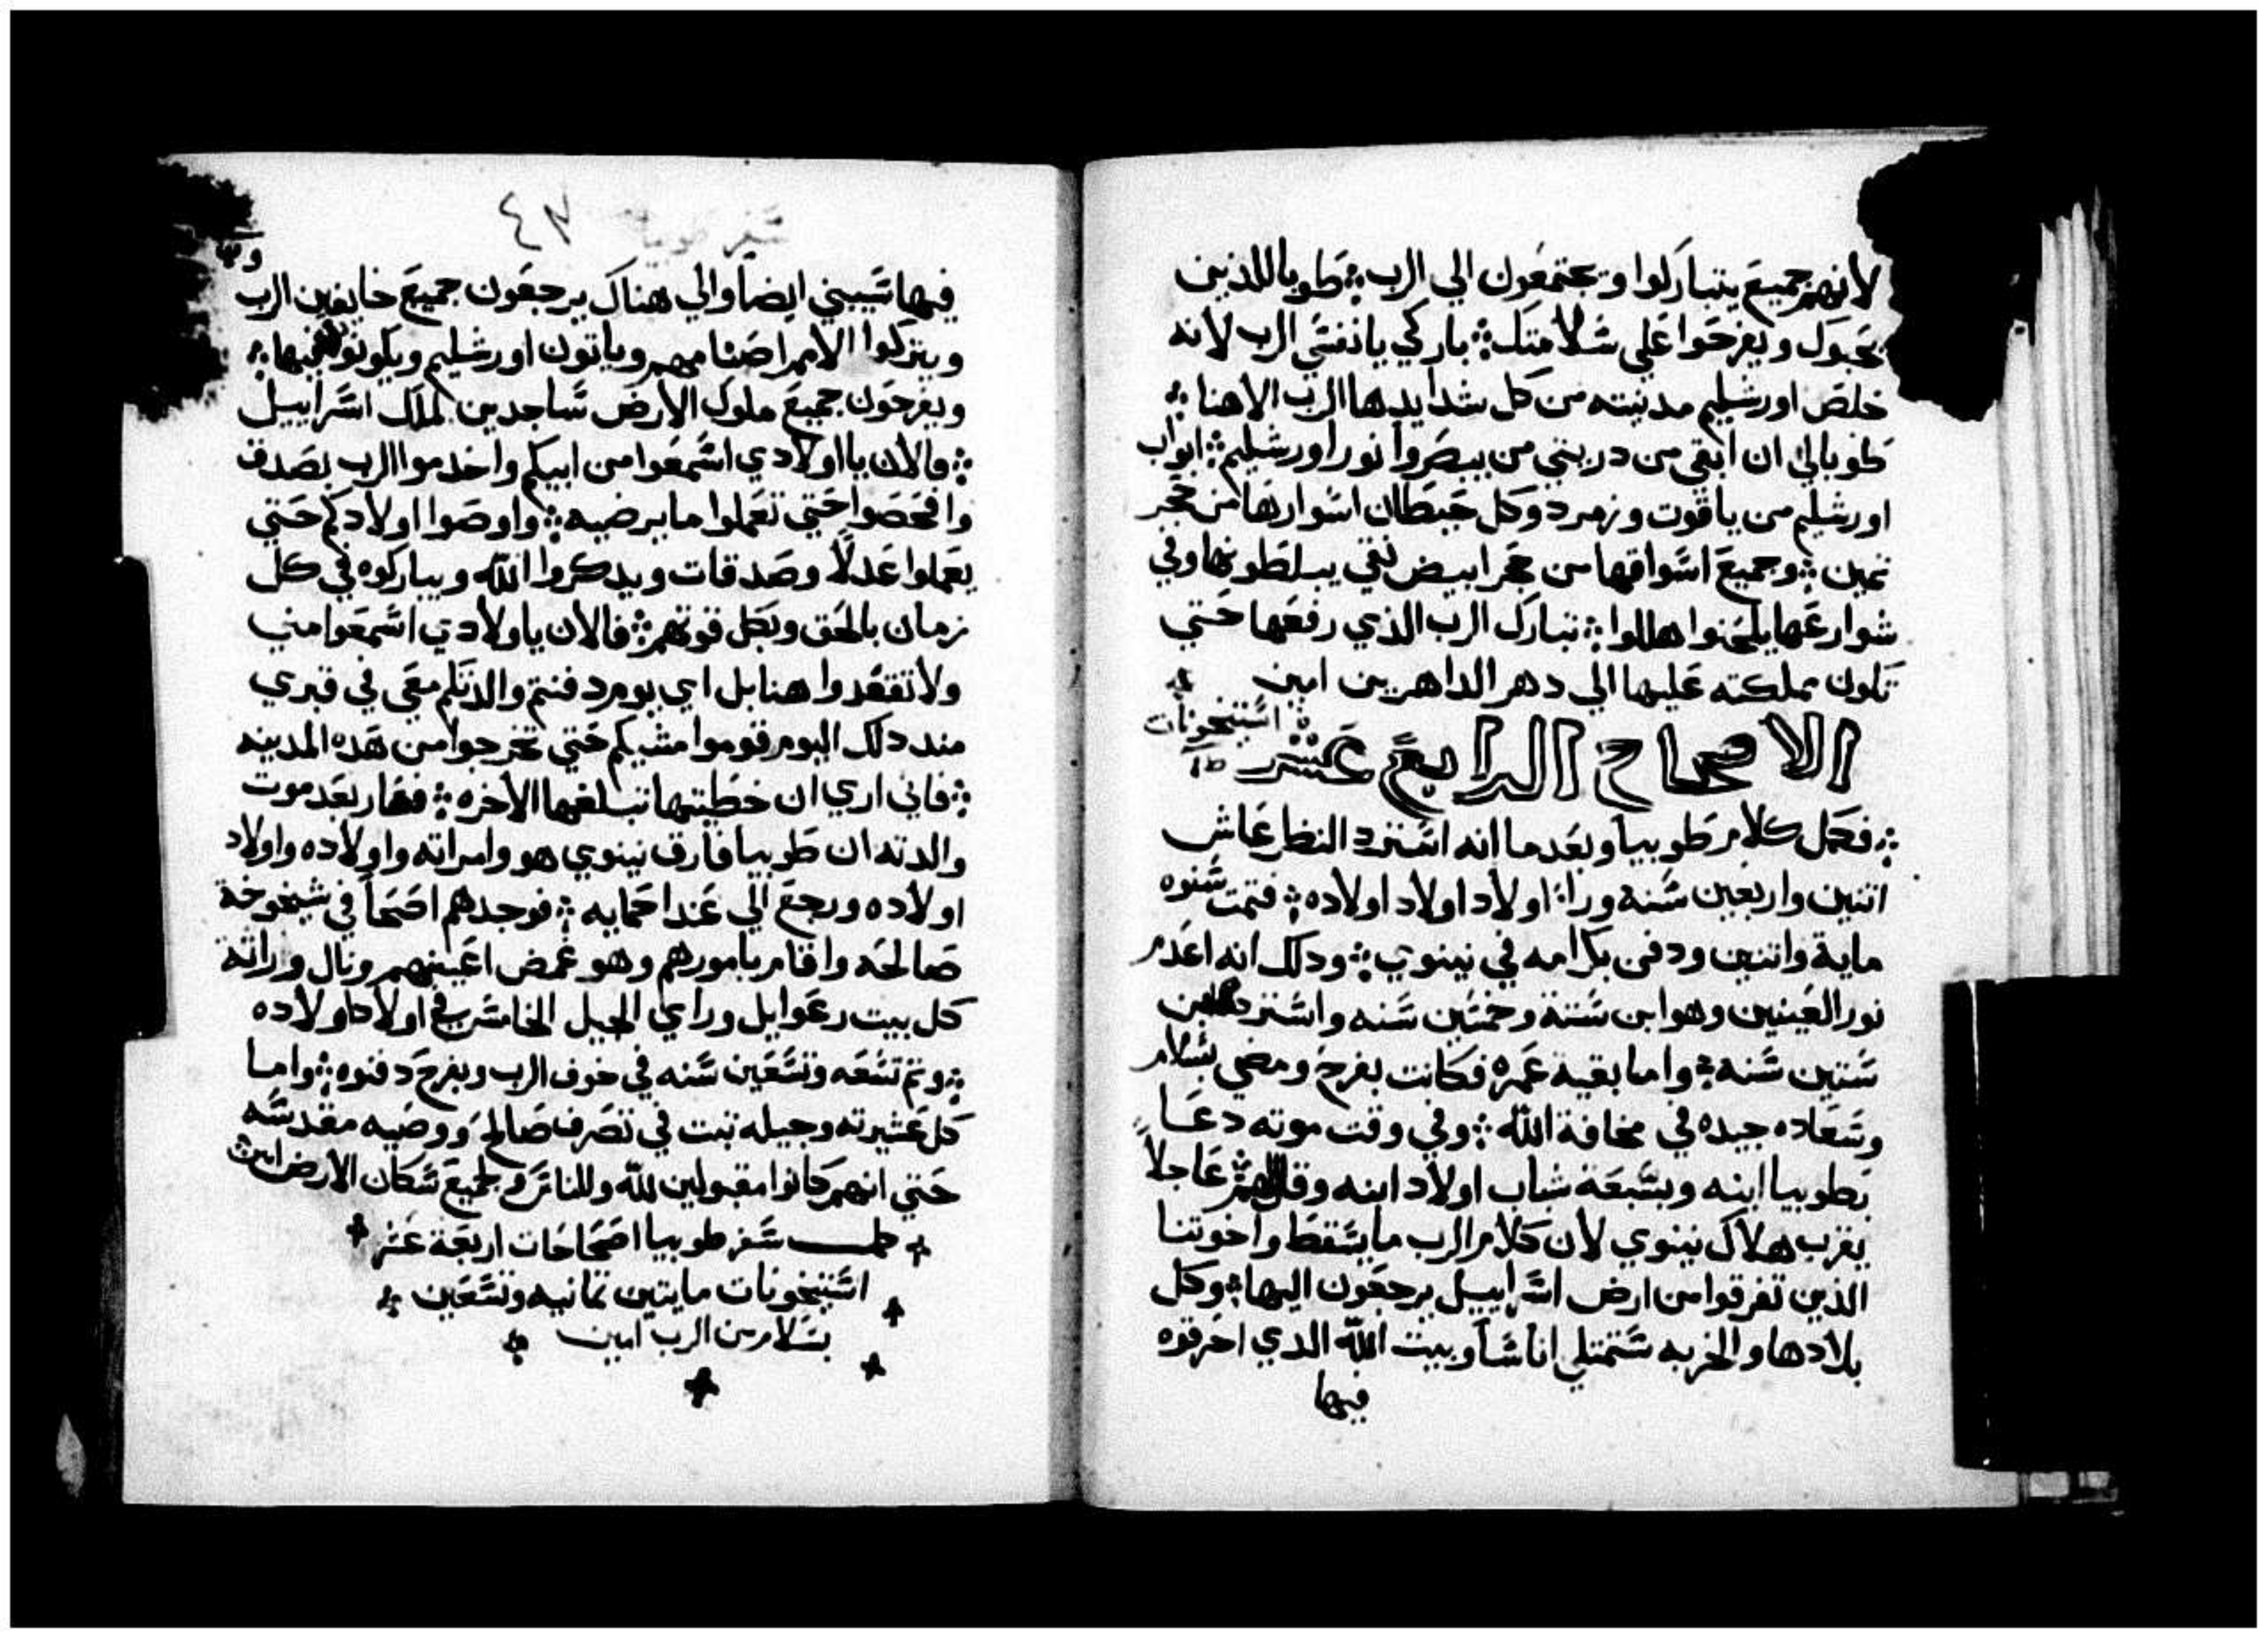 لانهم جميع يتباركوا وتجتمعون الي الرب ⁘ طوبا للذين
يحبوك ويفرحوا علي سلامتك ⁘ باركي يا نفسي الرب لانه
خلص اورشليم مدينته من كل شدايدها الرب الاهنا ⁘
طوبا لي ان ابقي من دريتي من يبصروا نور اورشليم ⁘ ابواب
اورشليم من ياقوت وزمرد وكل حيطان اسوارها من حجر
ثمين ⁘ وجميع اسواقها من حجر ابيض نقي يبلطونها وفي
شوارعها يلحنوا هللوا ⁘ تبارك الرب الذي رفعها حتي
تكون مملكته عليها الي دهر الداهرين امين
الاصحاح الرابع عشر استيخونات
⁘ فكمل كلام طوبيا وبعد ما انه استرد النظر عاش
اتنين واربعين سنه وراا اولاد اولاد اولاده ⁘ فتمت سنوه
ماية واتنين ودفن بكرامه في نينوي ⁘ ودلك انه اعدم
نور العينين وهو ابن ستة وخمسين سنه واسترد ابن
ستين سنه ⁘ واما بقية عمره فكانت بفرح ومضي بسلام
وسعاده جيده في مخافة الله ⁘ وفي وقت موته دعا
بطوبيا ابنه وبسبعة شباب اولاد ابنه وقال لهم ⁘ عاجلاً
يقرب هلاك نينوي لان كلام الرب ما يسقط واخوتنا
الذين تفرقوا من ارض اسراييل يرجعون اليها ⁘ وكل
بلادها والخربه ستمتلي اناسا وبيت الله الدي احرقوه
فيها
سفر طوبيا ٤٧
فيها سيبني ايضا والي هناك يرجعون جميع خايفين الرب
ويتركوا الامم اصنامهم وياتون اورشليم ويكونوا فيها ⁘
ويفرحون جميع ملوك الارض ساجدين لملك اسراييل
⁘ فالان يا اولادي اسمعوا من ابيكم واخدموا الرب بصدق
وافحصوا حتي تعملوا ما يرضيه ⁘ واوصوا اولادكم حتي
يعملوا عدلاً وصدقات ويدكروا الله ويباركوه في كل
زمان بالحق وبكل قوتهم ⁘ فالان ياولادي اسمعوا مني
ولا تقعدوا هنا بل اي يوم دفنتم والدتكم معي في قبري
مند دلك اليوم قوموا مشيكم حتي تخرجوا من هده المدينه
⁘ فاني اري ان خطيتها تبلغها الاخره ⁘ فصار بعد موت
والدته ان طوبيا فارق نينوي هو وامراته واولاده واولاد
اولاده ورجع الي عند احمايه ⁘ فوجدهم اصحا في شيخوخة
صالحه واقام بامورهم وهو غمض اعينهم ونال وراثة
كل بيت رعوايل وراي الجيل الخامس في اولاد اولاده
⁘ وتم تسعه وتسعين سنه في خوف الرب وبفرح دفنوه ⁘ واما
كل عشيرته وجيله تبت في تصرف صالح ووصيه مقدسه
حتي انهم كانوا مقبولين لله وللناس ولجميع سكان الارض امين
كمل سفر طوبيا اصحاحات اربعة عشر
استيخونات مايتين تمانيه وتسعين
بسلام من الرب امين